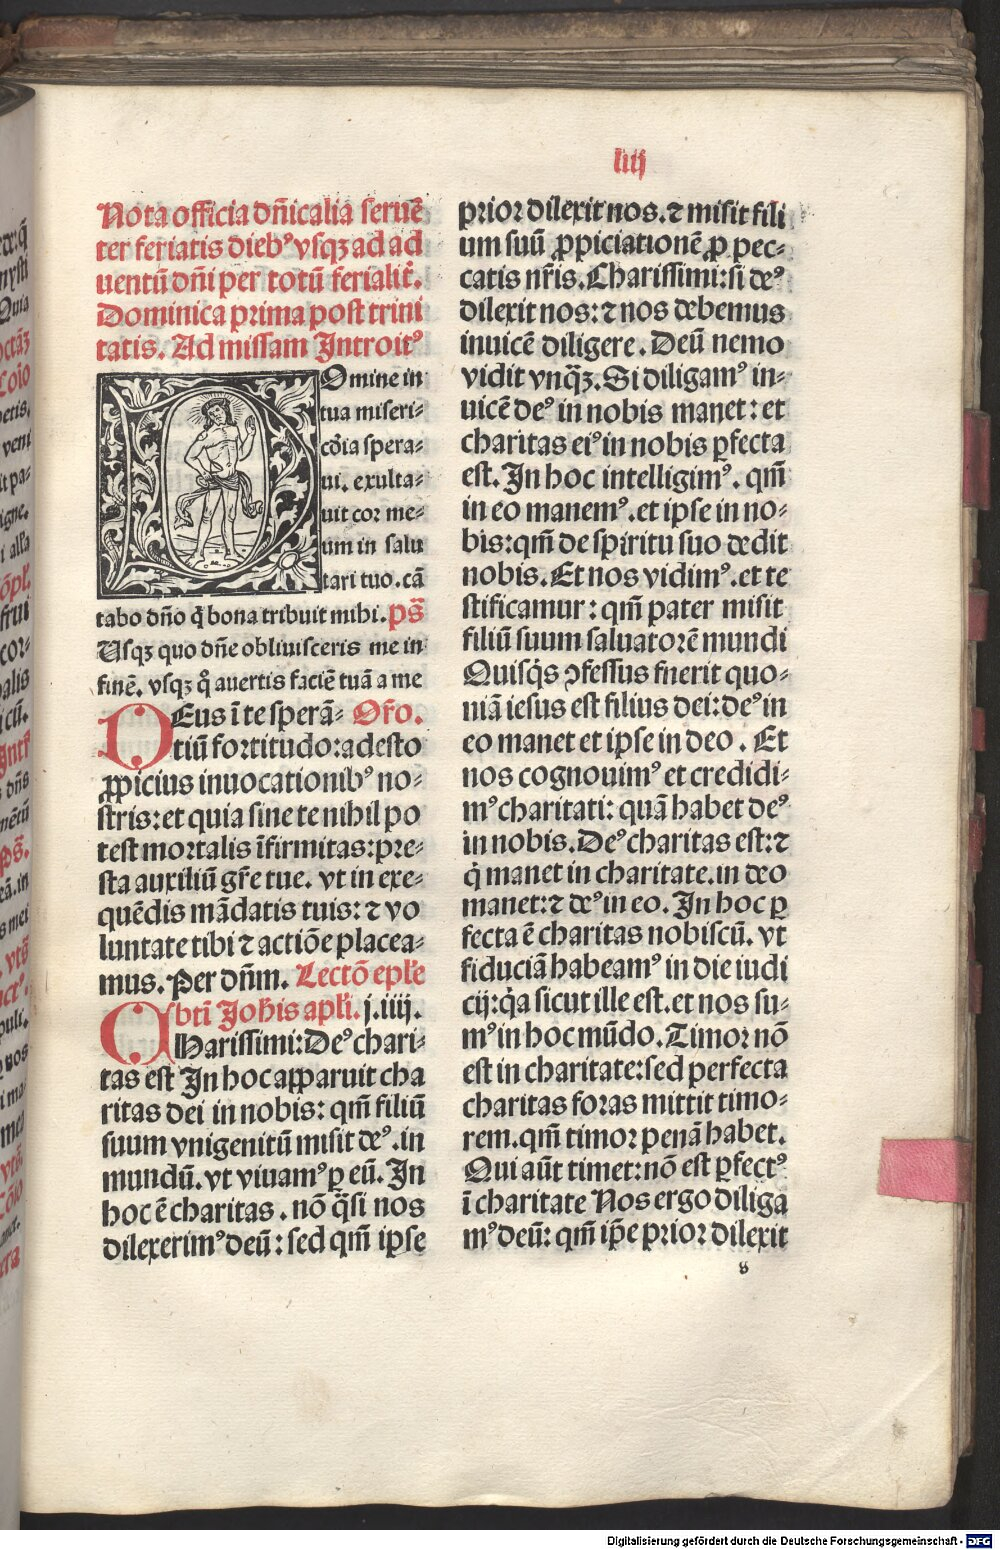 liiij
Nota officia dñicalia seruẽ
ter feriatis dieb⁹ vsqꝫ ad ad
uentũ dñi per totũ ferialit̃.
Dominica prima post trini
tatis. Ad missam Introit⁹
DOmine in
tua miseri-
cõia spera-
ui. exulta-
uit cor me-
um in salu
tari tuo. cã
tabo dño q̃ bona tribuit mihi. ps̃
Usqꝫ quo dñe obliuisceris me in
finẽ. vsqꝫ q̊ auertis faciẽ tuã a me
DEus ĩ te sperã- Or̃o.
tiũ fortitudo: adesto
ꝓpicius inuocationib⁹ no-
stris: et quia sine te nihil po
test mortalis ĩfirmitas: pre-
sta auxiliũ gr̃e tue. vt in exe-
quẽdis mãdatis tuis: ⁊ vo
luntate tibi ⁊ actiõe placea-
mus. Per dñm. Lectõ epl̃e
bti̇̃ Joh̃is apl̃i. j. iiij.
CHarissimi: De⁹ chari-
tas est In hoc apparuit cha
ritas dei in nobis: qm̃ filiũ
suum vnigenitũ misit de⁹. in
mundũ. vt viuam⁹ ꝑ eũ. In
hoc ẽ charitas. nõ q̃si nos
dilexerim⁹ deũ: sed qm̃ ipse
prior dilexit nos. ⁊ misit fili
um suũ ꝓpiciationẽ ꝓ pec-
catis nr̃is. Charissimi: si de⁹
dilexit nos: ⁊ nos debemus
inuicẽ diligere. Deũ nemo
vidit vnq̃ꝫ. Si diligam⁹ in-
uicẽ de⁹ in nobis manet: et
charitas ei⁹ in nobis ꝑfecta
est. In hoc intelligim⁹. qm̃
in eo manem⁹. et ipse in no-
bis: qm̃ de spiritu suo dedit
nobis. Et nos vidim⁹. et te
stificamur: qm̃ pater misit
filiũ suum saluatorẽ mundi
Quisq̇s ↄfessus fuerit quo-
niã iesus est filius dei: de⁹ in
eo manet et ipse in deo. Et
nos cognouim⁹ et credidi-
m⁹ charitati: quã habet de⁹
in nobis. De⁹ charitas est: ⁊
q̇ manet in charitate. in deo
manet: ⁊ de⁹ in eo. In hoc ꝑ
fecta ẽ charitas nobiscũ. vt
fiduciã habeam⁹ in die iudi
cij: q̇a sicut ille est. et nos su-
m⁹ in hoc mũdo. Timor nõ
est in charitate: sed perfecta
charitas foras mittit timo-
rem. qm̃ timor penã habet.
Qui aũt timet: nõ est ꝑfect⁹
ĩ charitate Nos ergo diliga
m⁹ deũ: qm̃ ip̃e prior dilexit
Digitalisierung gefördert durch die Deutsche Forschungsgemeinschaft - DFG